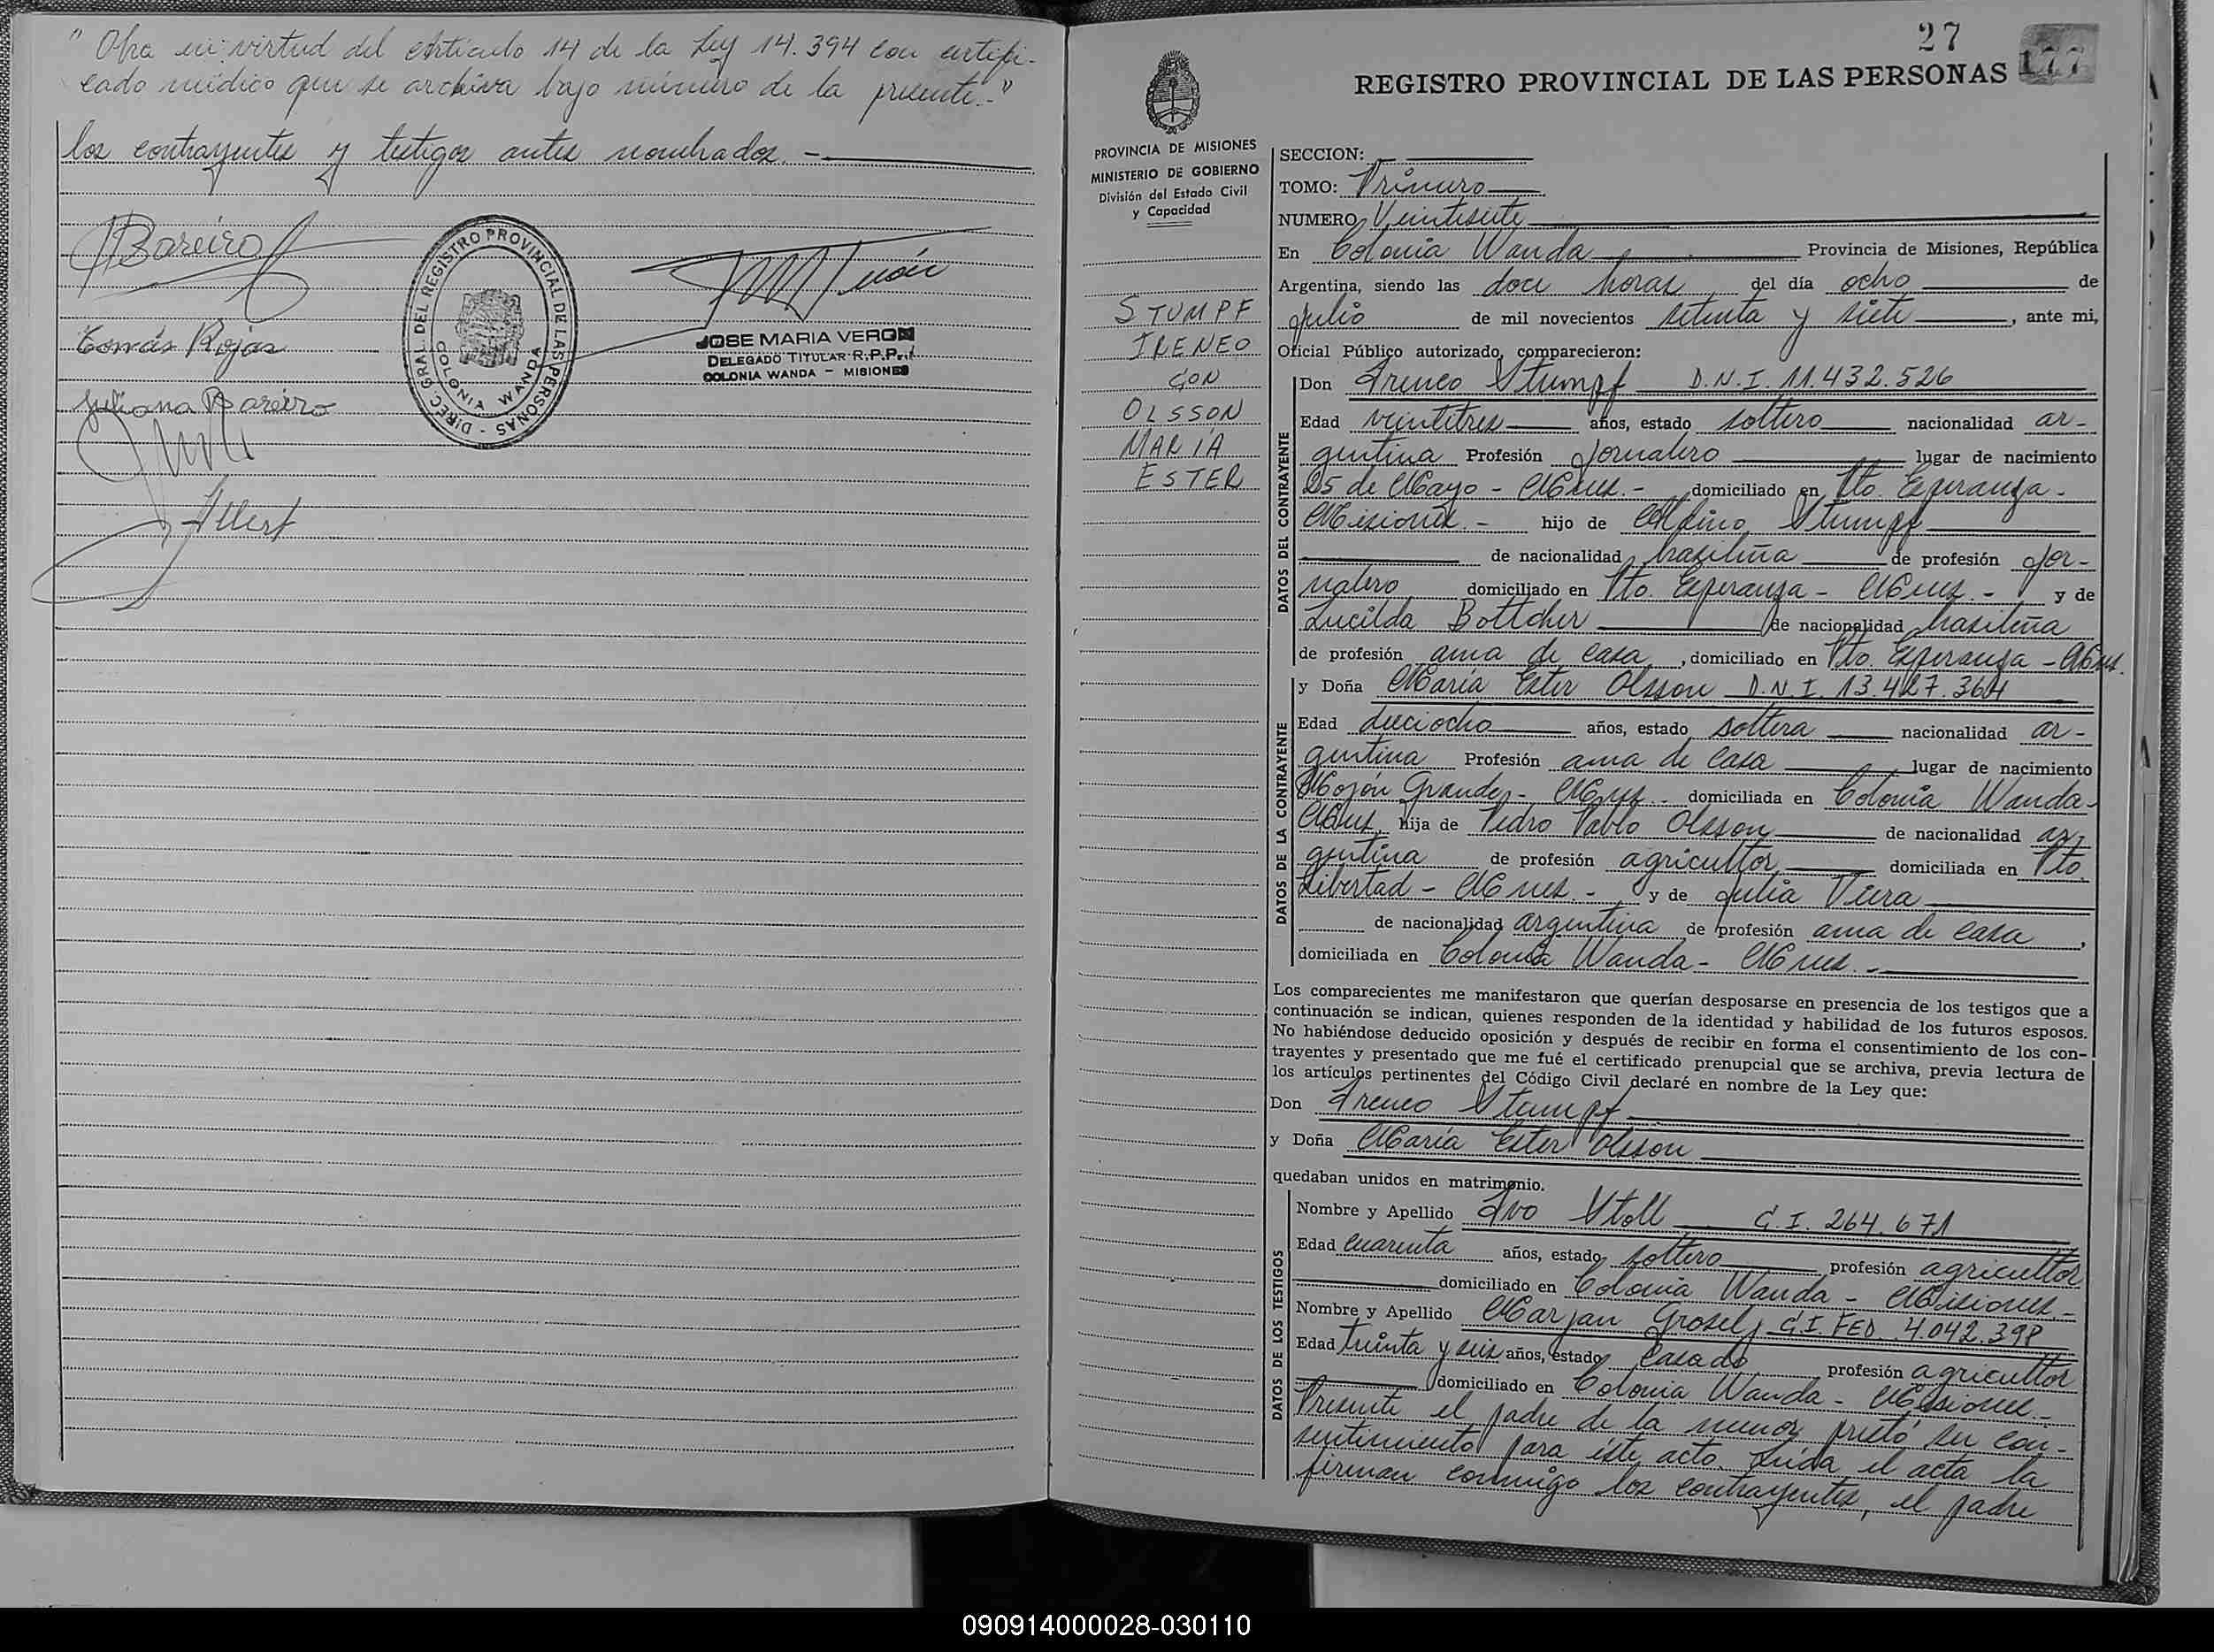 " Obra en virtud del Artículo 14 de la Ley 14.394 con certifi-
cado médico que se archiva bajo número de la presente.-"
los contrayentes y testigos antes nombrados.-
Bareiro
JOSE MARIA VERON
DELEGADO TITULAR R.P.P.
COLONIA WANDA - MISIONES
DIREC. GRAL. DEL REGISTRO PROVINCIAL DE LAS PERSONAS -
COLONIA WANDA
Tomás Rojas
Juliana Bareiro
27
177
REGISTRO PROVINCIAL DE LAS PERSONAS
PROVINCIA DE MISIONES
MINISTERIO DE GOBIERNO
División del Estado Civil
y Capacidad
STUMPF
IRENEO
CON
OLSSON
MARÍA
ESTER
SECCION:
TOMO: Primero
NUMERO Veintisiete
En Colonia Wanda Provincia de Misiones, República
Argentina, siendo las doce horas del día ocho de
Julio de mil novecientos setenta y siete, ante mi,
Oficial Público autorizado, comparecieron:
DATOS DEL CONTRAYENTE
Don Ireneo Stumpf D.N.I. 11.432.526
Edad veintitres años, estado soltero nacionalidad ar-
gentina Profesión Jornalero lugar de nacimiento
25 de Mayo - Mnes.- domiciliado en Pto. Esperanza-
Misiones.- hijo de Albino Stumpf
de nacionalidad brasileña de profesión Jor-
nalero domiciliado en Pto. Esperanza - Mnes.- y de
Lucilda Bottcher de nacionalidad brasileña
de profesión ama de casa, domiciliado en Pto. Esperanza - Mnes.
DATOS DE LA CONTRAYENTE
y Doña María Ester Olsson D.N.I. 13.427.364
Edad dieciocho años, estado soltera nacionalidad ar-
gentina Profesión ama de casa lugar de nacimiento
Mojón Grande - Mnes.- domiciliada en Colonia Wanda-
Mnes. hija de Pedro Pablo Olsson de nacionalidad ar-
gentina de profesión agricultor, domiciliada en Pto.
Libertad - Mnes.- y de Julia Viera
de nacionalidad argentina de profesión ama de casa,
domiciliada en Colonia Wanda - Mnes.-
Los comparecientes me manifestaron que querían desposarse en presencia de los testigos que a
continuación se indican, quienes responden de la identidad y habilidad de los futuros esposos.
No habiéndose deducido oposición y después de recibir en forma el consentimiento de los con-
trayentes y presentado que me fué el certificado prenupcial que se archiva, previa lectura de
los artículos pertinentes del Código Civil declaré en nombre de la Ley que:
Don Ireneo Stumpf
y Doña María Ester Olsson
quedaban unidos en matrimonio.
DATOS DE LOS TESTIGOS
Nombre y Apellido Ivo Stoll C.I. 264.671
Edad cuarenta años, estado soltero profesión agricultor
domiciliado en Colonia Wanda - Misiones.-
Nombre y Apellido Marjan Groselj C.I. FED. 4.042.398
Edad treinta y seis años, estado casado profesión agricultor
domiciliado en Colonia Wanda - Misiones.-
Presente el padre de la menor prestó su con-
sentimiento para éste acto. Leída el acta la
firman conmigo los contrayentes, el padre
090914000028-030110